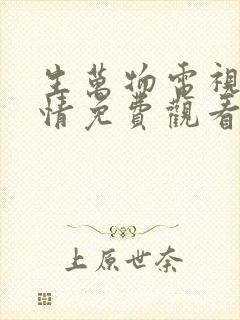 生萬物電視
情免費觀看
上原世奈